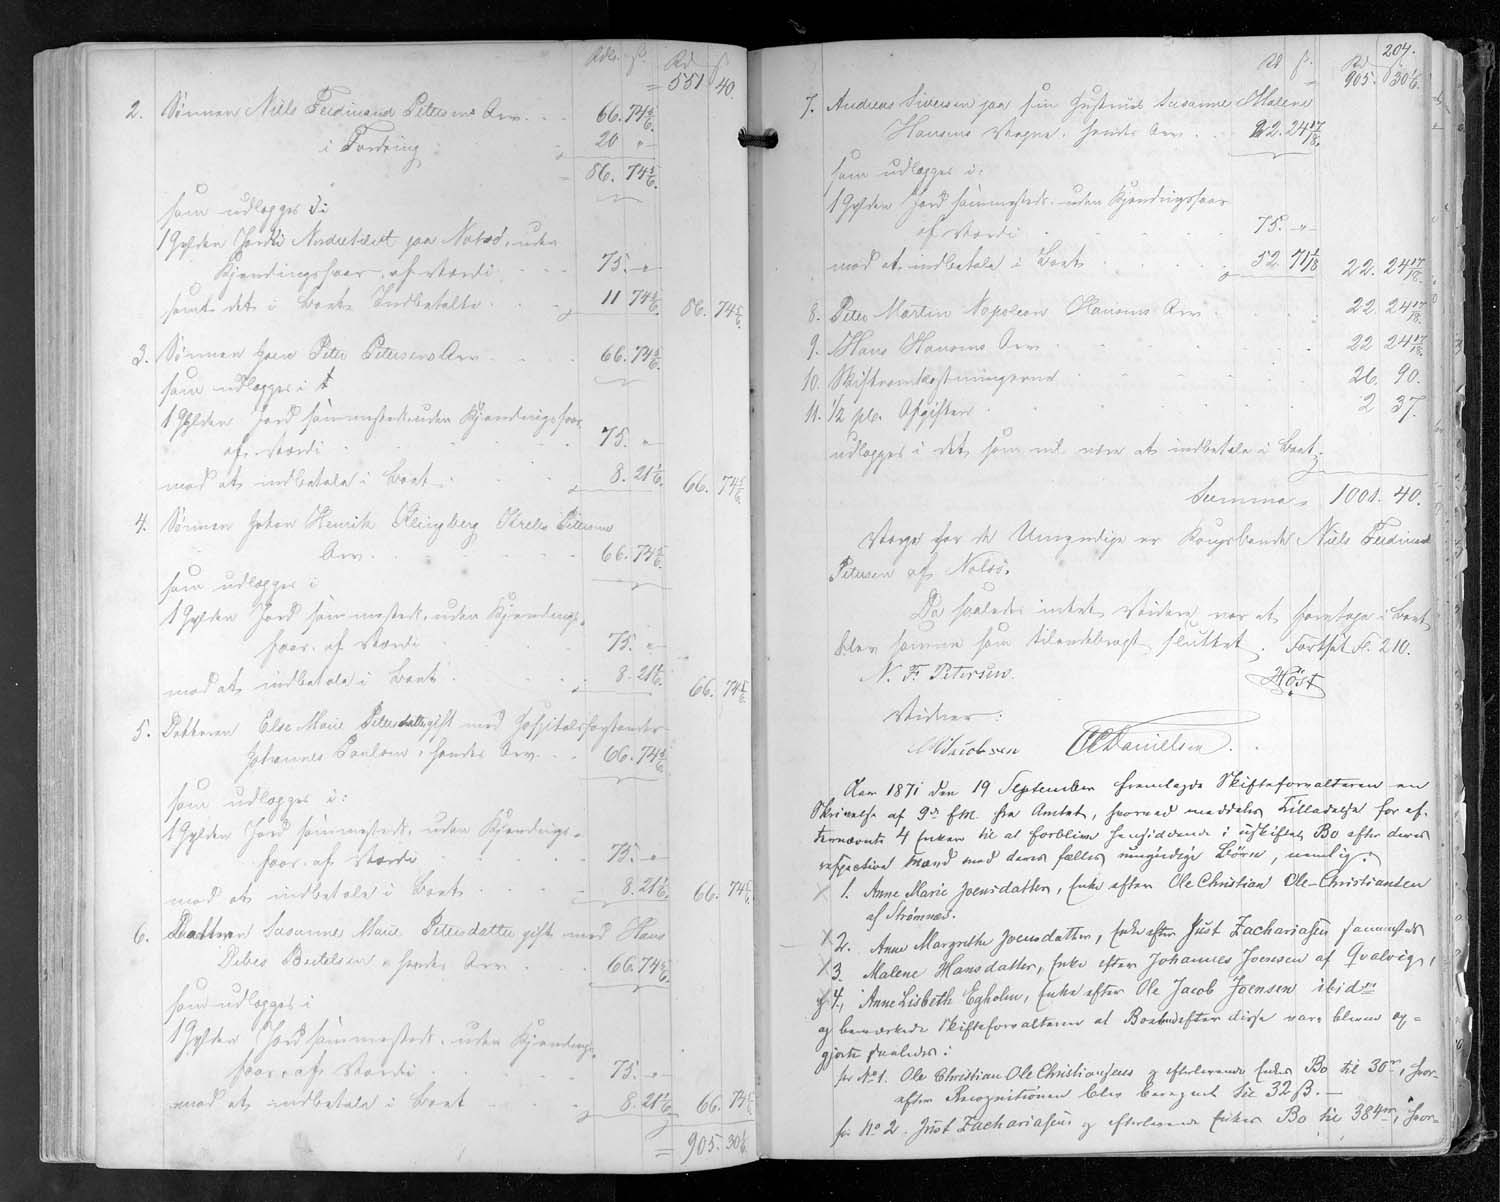 Rdlr. ß. Rd ß
= 551 40.
2. Sønnen Niels Ferdinand Petersens Arv. . . 66. 74 5/6.
i Fordring 20 "
86. 74 5/6.
som udlægges i:
1 Gylden Jord i paa Nolsø, uden
Kjendingsfaar, af Værdi . . . 75. "
samt det i Boet Indbetalte . . . 11 74 5/6. 86. 74 5/6.
3. Sønnen Joen Peter Petersens Arv . . . 66. 74 5/6.
som udlægges i
1 Gylden Jord sammesteds, uden Kjendingsfaar
af Værdi . . . 75. "
mod at indbetale i Boet . . . 8. 21 1/6. 66. 74 5/6.
4. Sønnen Johan Henrik Klingberg Krebs Petersens
Arv . . . 66. 74 5/6.
som udlægges i
1 Gylden Jord sammesteds, uden Kjendings-
faar, af Værdi . . . 75. "
mod at indbetale i Boet . . . 8. 21 1/6. 66. 74 5/6.
5. Datteren Else Marie Petersdatter gift med Hospitalsforstander
Johannes Poulsen, hendes Arv . . . 66. 74 5/6.
som udlægges i:
1 Gylden Jord sammesteds, uden Kjendings-
faar, af Værdi . . . 75. "
mod at indbetale i Boet . . . 8. 21 1/6. 66. 74 5/6.
6. Datteren Susanne Marie Petersdatter gift med Hans
Debes Joensen, hendes Arv . . . 66. 74 5/6.
som udlægges i
1 Gylden Jord sammesteds, uden Kjendings-
faar, af Værdi . . . 75. "
mod at indbetale i Boet . . . 8. 21 1/6. 66. 74 5/6.
= 905. 30 1/6.
204.
Rd ß. Rd ß
905. 30 1/6.
7. Andreas Siversen paa sin Hustrues Susanne Malene
Hansens Vegne, hendes Arv . . 22. 24 17/18.
som udlægges i:
1 Gylden Jord sammesteds, uden Kjendingsfaar
af Værdi . . . 75. "
mod at indbetale i Boet . . . 52. 71 1/18 22. 24 17/18.
8. Peter Martin Napoleon Hansens Arv . . . 22. 24 17/18.
9. Hans Hansens Arv . . . 22 24 17/18.
10. Skifteomkostningerne . . . 26. 90.
11. 1/2 pC. Afgiften . . . 2 37.
udlægges i det som vil være at indbetale i Boet.
Summa 1001. 40.
Værge for de Umyndige er Kongsbonde Niels Ferdinand
Petersen af Nolsø.
Da saaledes intet Videre var at foretage i Boet
blev samme som tilendebragt sluttet. Fortsat fl. 210.
N. F. Petersen. Høst
Vidner:
Jacobsen Danielsen
Aar 1871 den 19 September fremlagde Skifteforvalteren en
Skrivelse af 9de f. M. fra Amtet, hvorved meddeles Tilladelse for ef-
ternævnte 4 Enker til at forblive hensiddende i uskiftet Bo efter deres
respective Mænd med deres fælles umyndige Børn, nemlig:
1. Anne Marie Joensdatter, Enke efter Ole Christian Ole-Christiansen
af Strømnæs.
2. Anne Margrethe Joensdatter, Enke efter Just Zachariasen sammesteds
3. Malene Hansdatter, Enke efter Johannes Joensen af Qvalvig,
og 4, Anne Lisbeth Egholm, Enke efter Ole Jacob Joensen ibidm
og bemærkede Skifteforvalteren at Boerne efter disse vare blevne op-
gjorte saaledes:
for No 1. Ole Christian Ole Christiansens og efterlevende Enkes Bo til 30 , hvor-
efter Recognitionen blev beregnet til 32 ß. —
for No 2. Just Zachariasens og efterlevende Enkes Bo til 384 , hvor-